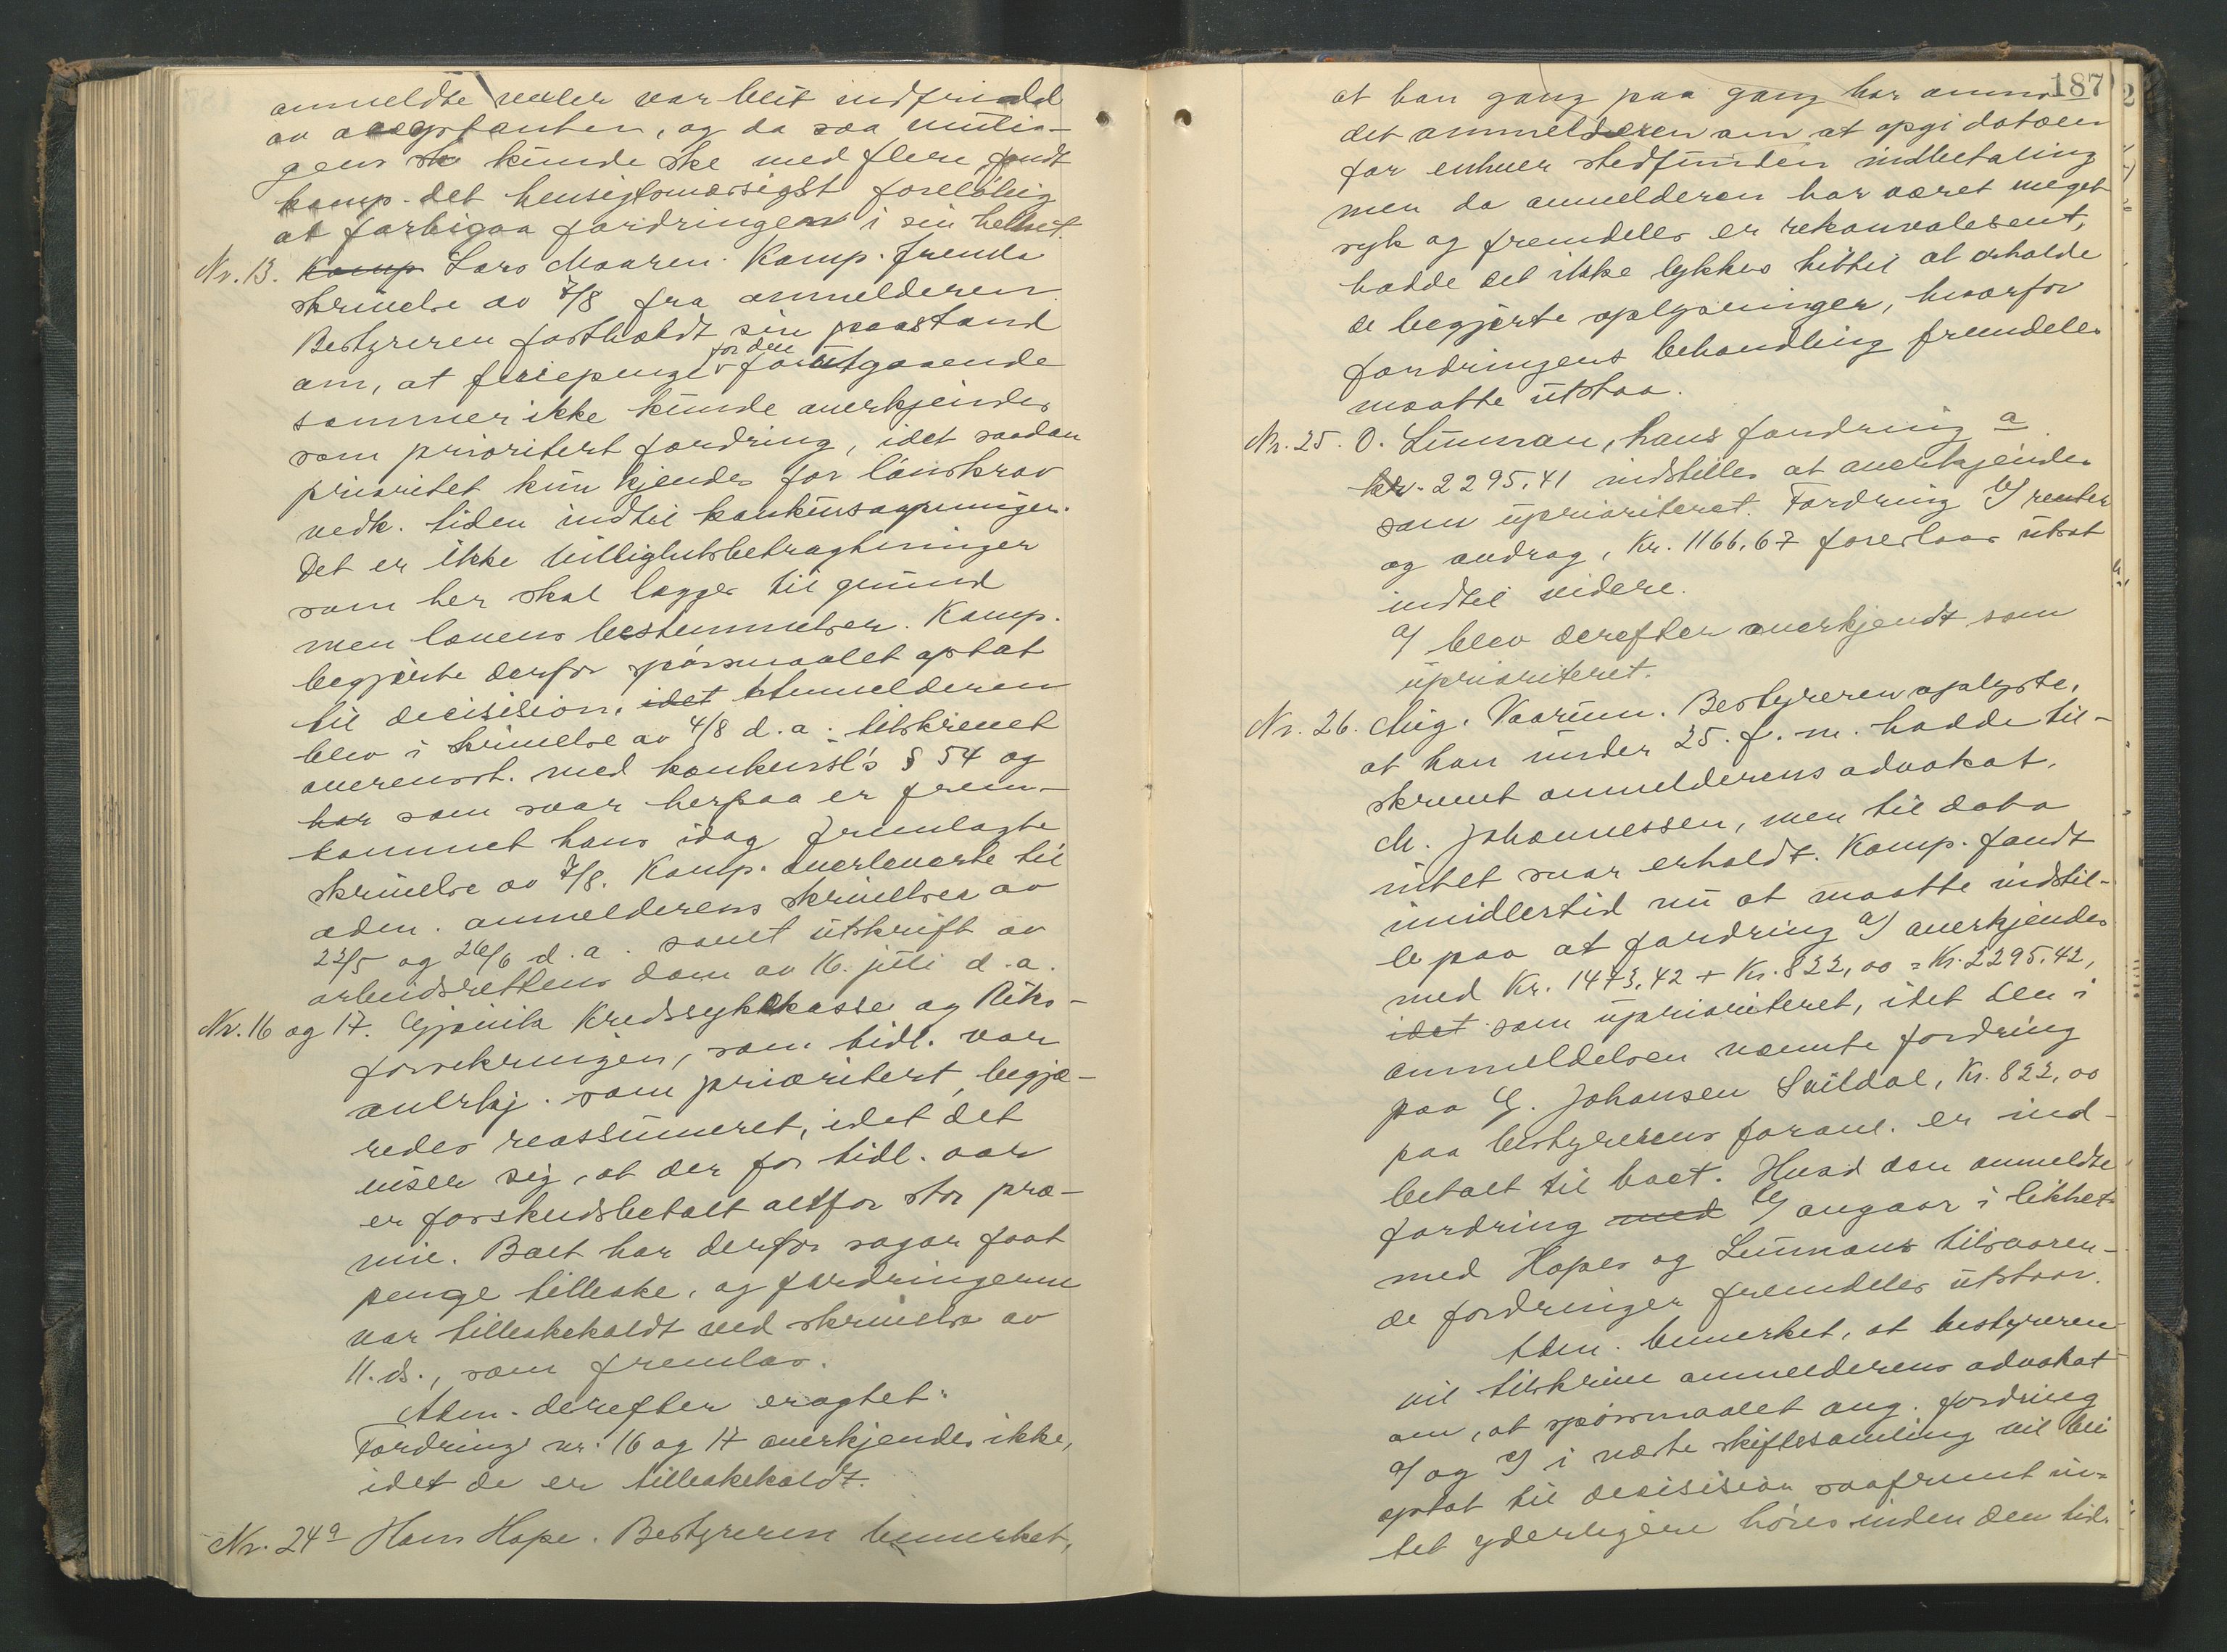 anmeldte veksler var blit indfridd
av acceptanten, og da saa muli-
gens kunde ske med flere fandt
komp. det hensigtsmæssigst foreløbig
at forbigaa fordringen i sin helhet.
Nr. 13. Komp Lars Moaren. Komp. fremla
skrivelse av 7/8 fra anmelderen.
Bestyreren fastholdt sin paastand
om, at feriepenge for den forutgaaende
sommer ikke kunde anerkjendes
som prioritert fordring, idet saadan
prioritet kun kjendes for lønskrav
vedk. tiden indtil konkursaapningen.
Det er ikke billighetsbetragtninger
som her skal lægges til grund
men lovens bestemmelser. Komp.
begjærte derfor spørsmaalet optat
til decisision, idet Anmelderen
blev i skrivelse av 4/8 d.a. tilskrevet
overensst. med konkursl's § 54 og
har som svar herpaa er frem-
kommet hans idag fremlagte
skrivelse av 7/8. Komp. overleverte til
adm. anmelderens skrivelser av
22/5 og 26/6 d.a. samt utskrift av
arbeidsrettens dom av 16. juli d.a.
Nr. 16 og 17. Gjøvik Kredssykekasse og Riks-
forsikringen, som tidl. var
anerkj. som prioritert, begjæ-
redes reassumeret, idet det
viser sig, at der for tidl. aar
er forskudsbetalt altfor stor præ-
mie. Boet har derfor sogar faat
penge tilbake, og fordringerne
var tilbakekaldt ved skrivelse av
11. ds., som fremlaa.
Adm. derefter eragtet:
Fordring nr. 16 og 17 anerkjendes ikke,
idet de er tilbakekaldt.
Nr. 24a Hans Hope. Bestyreren bemerket,
187
at han gang paa gang har anmo-
det anmelderen om at opgi datoen
for enhver stedfunden indbetaling
men da anmelderen har været meget
syk og fremdeles er rekonvalesent,
hadde det ikke lykkes hittil at erholde
de begjærte oplysninger, hvorfor
fordringens behandling fremdeles
maatte utstaa.
Nr. 25. O. Linnan, hans fordring a
kr. 2295.41 indstilles at anerkjendes
som uprioriteret. Fordring b/ renter
og andrag, Kr. 1166.67 foreslaas utsat
indtil videre.
a/ blev derefter anerkjendt som
uprioriteret.
Nr. 26. Aug. Vaarum. Bestyreren oplyste,
at han under 25. f. m. hadde til-
skrevet anmelderens advokat,
M. Johannessen, men til dato
intet svar erholdt. Komp. fandt
imidlertid nu at maatte indstil-
le paa at fordring a/ anerkjendes
med Kr. 1473.42 + Kr. 822,00 = Kr. 2295.42,
idet som uprioriteret, idet den i
anmeldelsen nævnte fordring
paa G. Johansen Svildal, Kr. 822,00
paa bestyrerens foranl. er ind-
betalt til boet. Hvad den anmeldte
fordring med b/ angaar i likhet
med Hopes og Linnans tilsvaren-
de fordringer fremdeles utstaar.
Adm. bemerket, at bestyreren
vil tilskrive anmelderens advokat
om, at spørsmaalet ang. fordring
a/ og c/ i næste skiftesamling vil bli
optat til decisision saafremt in-
tet yderligere høres inden den tid.